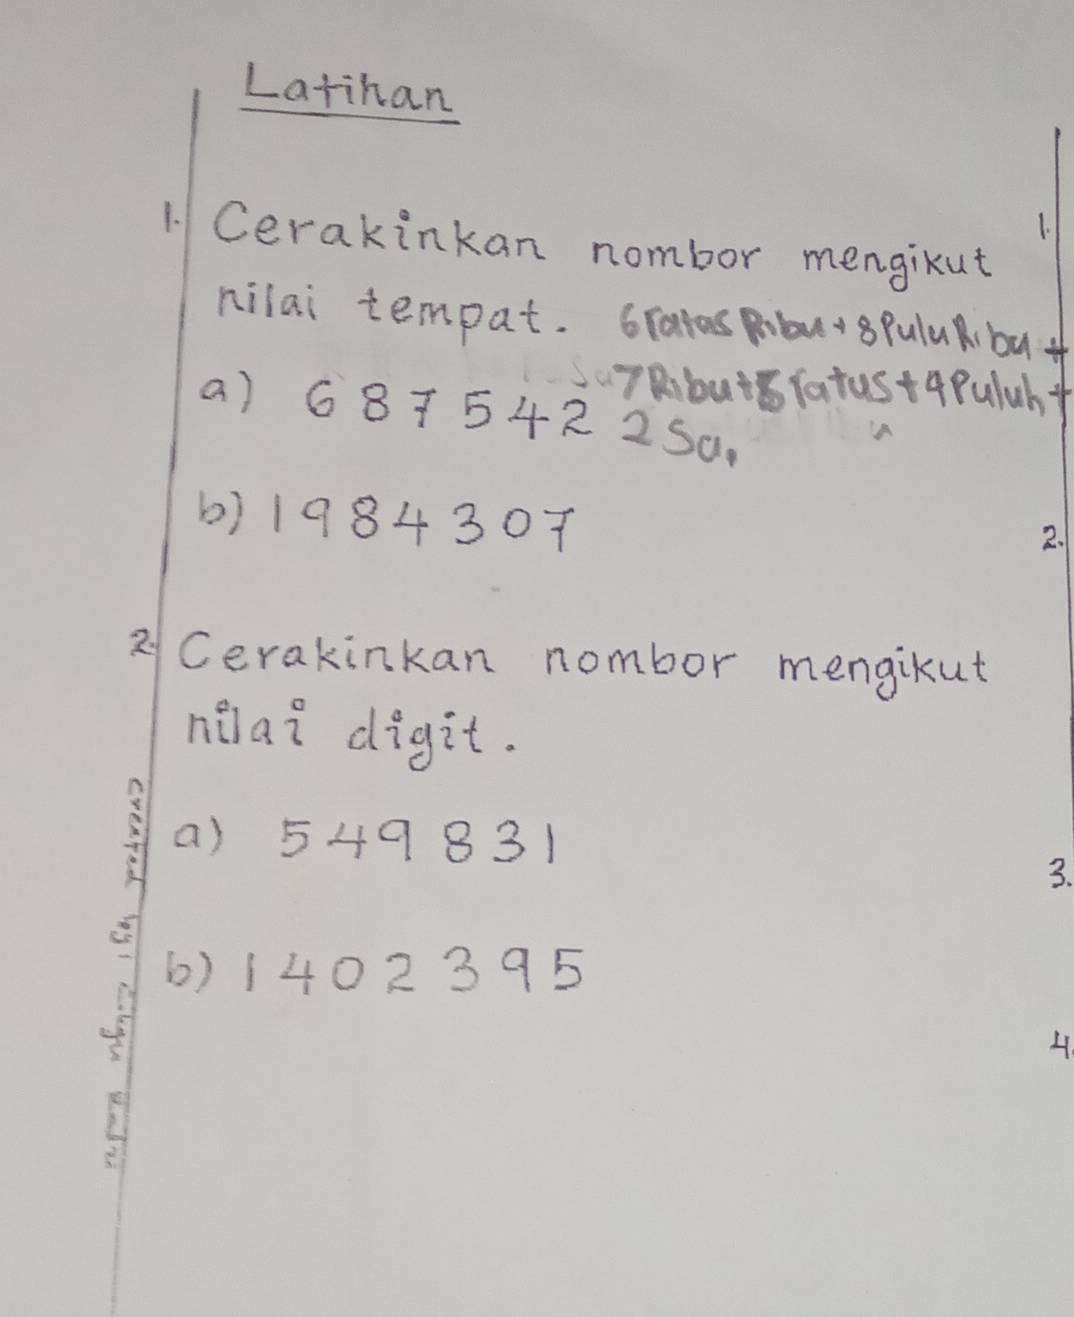 Latihan
1. Cerakinkan nombor mengikut
nilai tempat. 6 ratas Ribu + 8 Pulu Ribu +
7 Ribu + 5 ratus + 4 Puluh +
a) 687 542 2 Sa.
b) 1984 307
2. Cerakinkan nombor mengikut
nilai digit.
a) 549 831
b) 1402 395
created by:
1.
2.
3.
4.